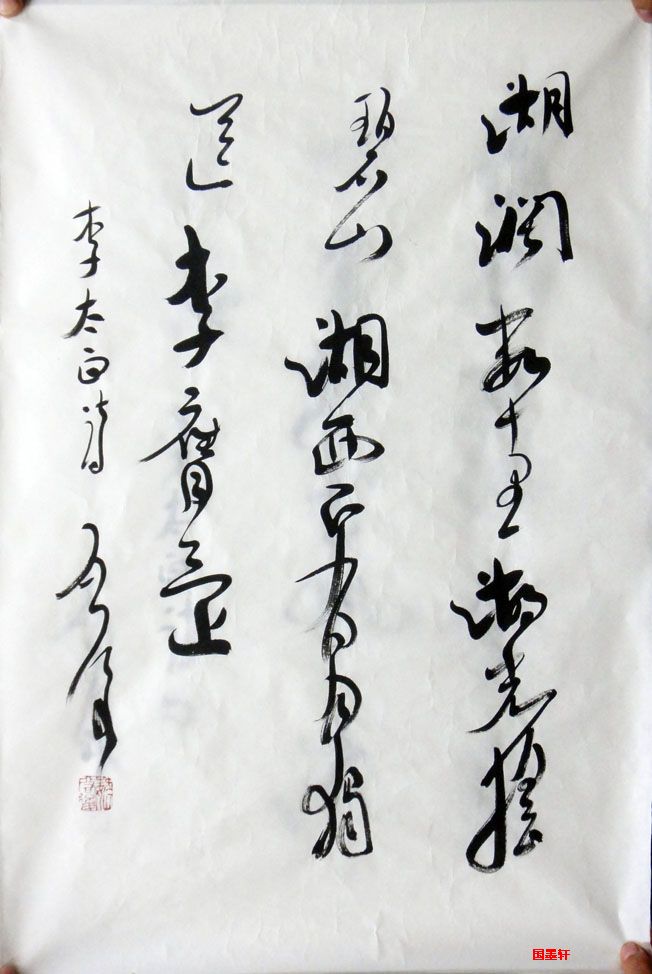 湖濶数十里湖光摇
碧山湖西正有月独
送李膺还
李太白诗
国墨轩